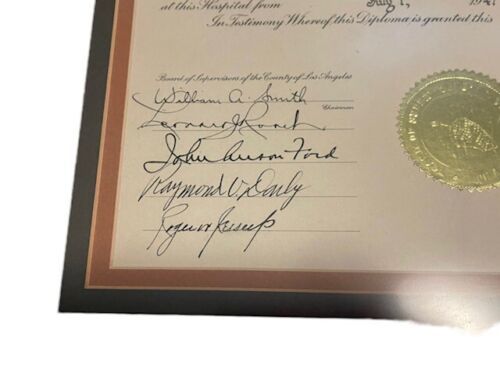 at this Hospital from Aug 1, 194
In Testimony Whereof this Diploma is granted this
Board of Supervisors of the County of Los Angeles
William A. Smith
Chairman
Leonard J. Roach
John Anson Ford
Raymond V. Darby
Roger W Jessup